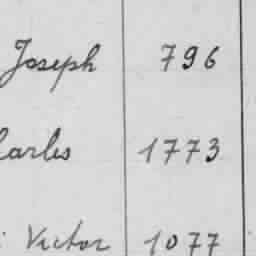 Joseph 796
harles 1773
Victor 1077